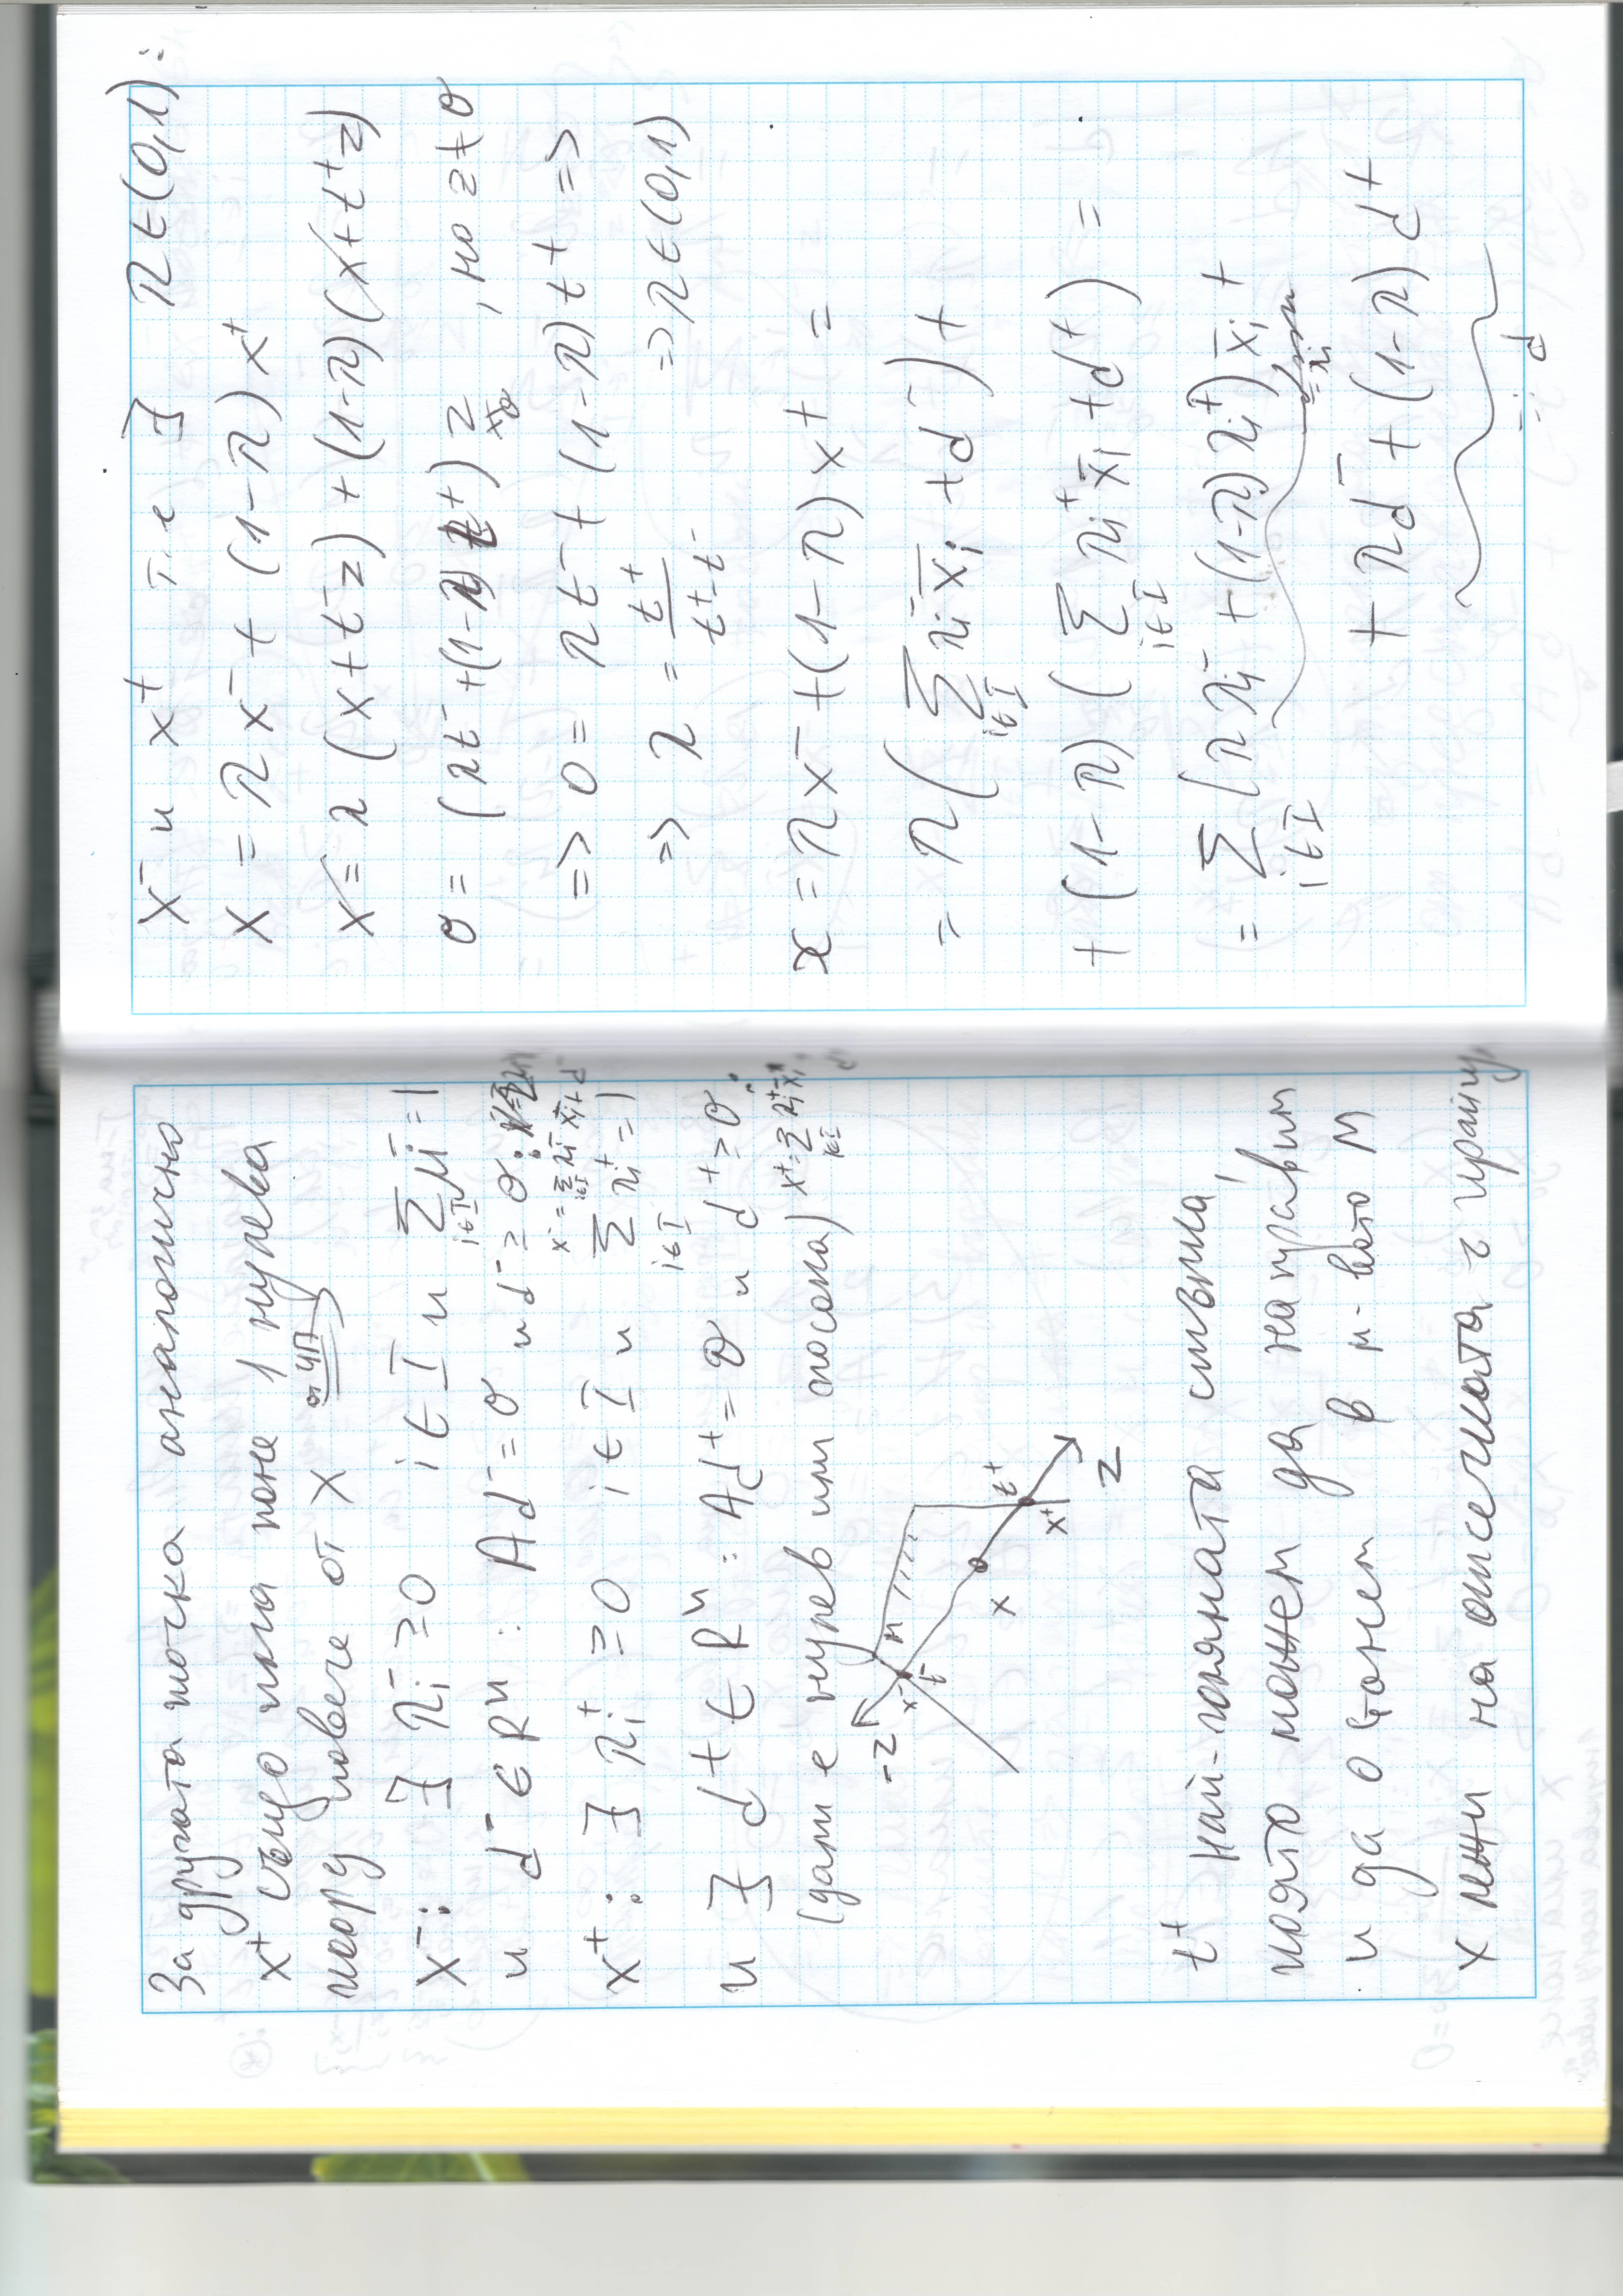 За другата посока аналогично
x⁺ също има поне 1 нулева
коорд. повече от x
от ИП
x⁻: ∃ λᵢ⁻ ≥ 0 i ∈ I и Σ_{i∈I} μᵢ⁻ = 1
и d⁻ ∈ Rⁿ : Ad⁻ = 0 и d⁻ ≥ 0 :
x⁻ = Σ_{i∈I} λᵢ⁻ x̄ᵢ + d⁻
x⁺ : ∃ λᵢ⁺ ≥ 0 i ∈ I и Σ_{i∈I} λᵢ⁺ = 1
и ∃ d⁺ ∈ Rⁿ : Ad⁺ = 0 и d⁺ ≥ 0 :
(дали е нулев или посока) x⁺ = Σ_{i∈I} λᵢ⁺ x̄ᵢ + d⁺
-z
x⁻ t⁻ M
x
x⁺ t⁺
z
t⁺ най-голямата стъпка,
която можем да направим
и да останем в м-вото M
x лежи на отсечката с краища
x⁻ и x⁺ т.е ∃ λ ∈ (0,1) :
x = λx⁻ + (1-λ)x⁺
x = λ(x + t⁻z) + (1-λ)(x + t⁺z)
0 = (λt⁻ + (1-λ)t⁺) z , но z ≠ 0
≠0
=> 0 = λt⁻ + (1-λ)t⁺ =>
=> λ = t⁺/(t⁺ - t⁻) => λ ∈ (0,1)
x = λx⁻ + (1-λ)x⁺ =
= λ(Σ_{i∈I} λᵢ⁻ x̄ᵢ + d⁻) +
+ (1-λ)(Σ_{i∈I} λᵢ⁺ x̄ᵢ + d⁺) =
= Σ_{i∈I} [λλᵢ⁻ + (1-λ)λᵢ⁺) x̄ᵢ +
=: λᵢ
+ λd⁻ + (1-λ)d⁺
=: d